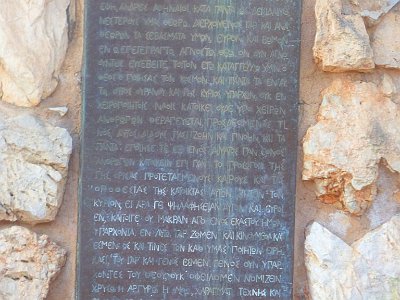 ΕΦΗ, ΑΝΔΡΕΣ ΑΘΗΝΑΙΟΙ, ΚΑΤΑ ΠΑΝΤΑ ΩΣ ΔΕΙΣΙΔΑΙΜΟ
ΝΕΣΤΕΡΟΥΣ ΥΜΑΣ ΘΕΩΡΩ. ΔΙΕΡΧΟΜΕΝΟΣ ΓΑΡ ΚΑΙ ΑΝΑ
ΘΕΩΡΩΝ ΤΑ ΣΕΒΑΣΜΑΤΑ ΥΜΩΝ ΕΥΡΟΝ ΚΑΙ ΒΩΜΟΝ
ΕΝ Ω ΕΠΕΓΕΓΡΑΠΤΟ, ΑΓΝΩΣΤΩ ΘΕΩ. ΟΝ ΟΥΝ ΑΓΝΟ
ΟΥΝΤΕΣ ΕΥΣΕΒΕΙΤΕ, ΤΟΥΤΟΝ ΕΓΩ ΚΑΤΑΓΓΕΛΛΩ ΥΜΙΝ.
Ο ΘΕΟΣ Ο ΠΟΙΗΣΑΣ ΤΟΝ ΚΟΣΜΟΝ ΚΑΙ ΠΑΝΤΑ ΤΑ ΕΝ ΑΥ
ΤΩ, ΟΥΤΟΣ ΟΥΡΑΝΟΥ ΚΑΙ ΓΗΣ ΚΥΡΙΟΣ ΥΠΑΡΧΩΝ ΟΥΚ ΕΝ
ΧΕΙΡΟΠΟΙΗΤΟΙΣ ΝΑΟΙΣ ΚΑΤΟΙΚΕΙ ΟΥΔΕ ΥΠΟ ΧΕΙΡΩΝ
ΑΝΘΡΩΠΩΝ ΘΕΡΑΠΕΥΕΤΑΙ ΠΡΟΣΔΕΟΜΕΝΟΣ ΤΙ
ΝΟΣ, ΑΥΤΟΣ ΔΙΔΟΥΣ ΠΑΣΙ ΖΩΗΝ ΚΑΙ ΠΝΟΗΝ ΚΑΙ ΤΑ
ΠΑΝΤΑ
ΑΝΘΡΩΠΩΝ ΚΑΤΟΙΚΕΙΝ ΕΠΙ ΠΑΝ ΤΟ ΠΡΟΣΩΠΟΝ ΤΗΣ
ΓΗΣ, ΟΡΙΣΑΣ ΠΡΟΤΕΤΑΓΜΕΝΟΥΣ ΚΑΙΡΟΥΣ ΚΑΙ ΤΑΣ
ΟΡΟΘΕΣΙΑΣ ΤΗΣ ΚΑΤΟΙΚΙΑΣ ΑΥΤΩΝ ΖΗΤΕΙΝ ΤΟΝ
ΚΥΡΙΟΝ, ΕΙ ΑΡΑ ΓΕ ΨΗΛΑΦΗΣΕΙΑΝ ΑΥΤΟΝ ΚΑΙ ΕΥΡΟΙ
ΕΝ, ΚΑΙΤΟΙΓΕ ΟΥ ΜΑΚΡΑΝ ΑΠΟ ΕΝΟΣ ΕΚΑΣΤΟΥ ΗΜΩΝ
ΥΠΑΡΧΟΝΤΑ. ΕΝ ΑΥΤΩ ΓΑΡ ΖΩΜΕΝ ΚΑΙ ΚΙΝΟΥΜΕΘΑ ΚΑΙ
ΕΣΜΕΝ, ΩΣ ΚΑΙ ΤΙΝΕΣ ΤΩΝ ΚΑΘ ΥΜΑΣ ΠΟΙΗΤΩΝ ΕΙΡΗ
ΚΑΣΙ, ΤΟΥ ΓΑΡ ΚΑΙ ΓΕΝΟΣ ΕΣΜΕΝ. ΓΕΝΟΣ ΟΥΝ ΥΠΑΡ
ΧΟΝΤΕΣ ΤΟΥ ΘΕΟΥ ΟΥΚ ΟΦΕΙΛΟΜΕΝ ΝΟΜΙΖΕΙΝ
ΧΡΥΣΩ Η ΑΡΓΥΡΩ Η ΛΙΘΩ, ΧΑΡΑΓΜΑΤΙ ΤΕΧΝΗΣ ΚΑΙ